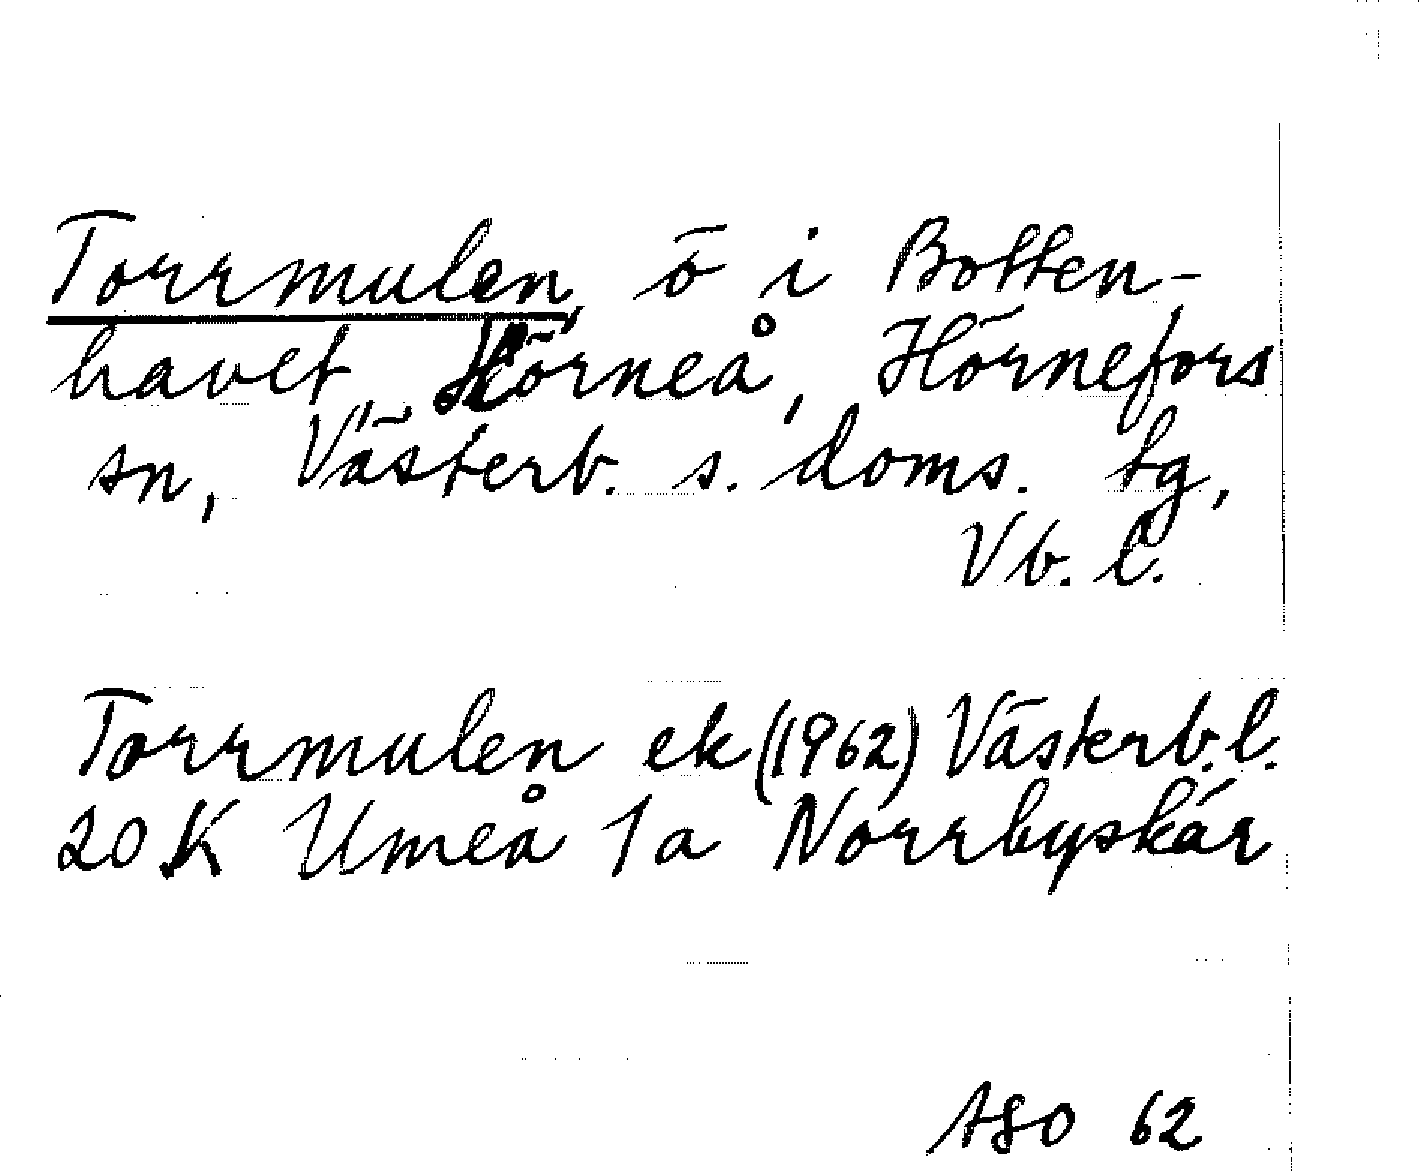 Torrmulen, ö i Botten-
havet, Hörneå, Hörnefors
sn, Västerb. s. doms. tg,
Vb. l.
Torrmulen ek (1962) Västerb. l.
20 K Umeå 1a Norrbyskär
ASO 62